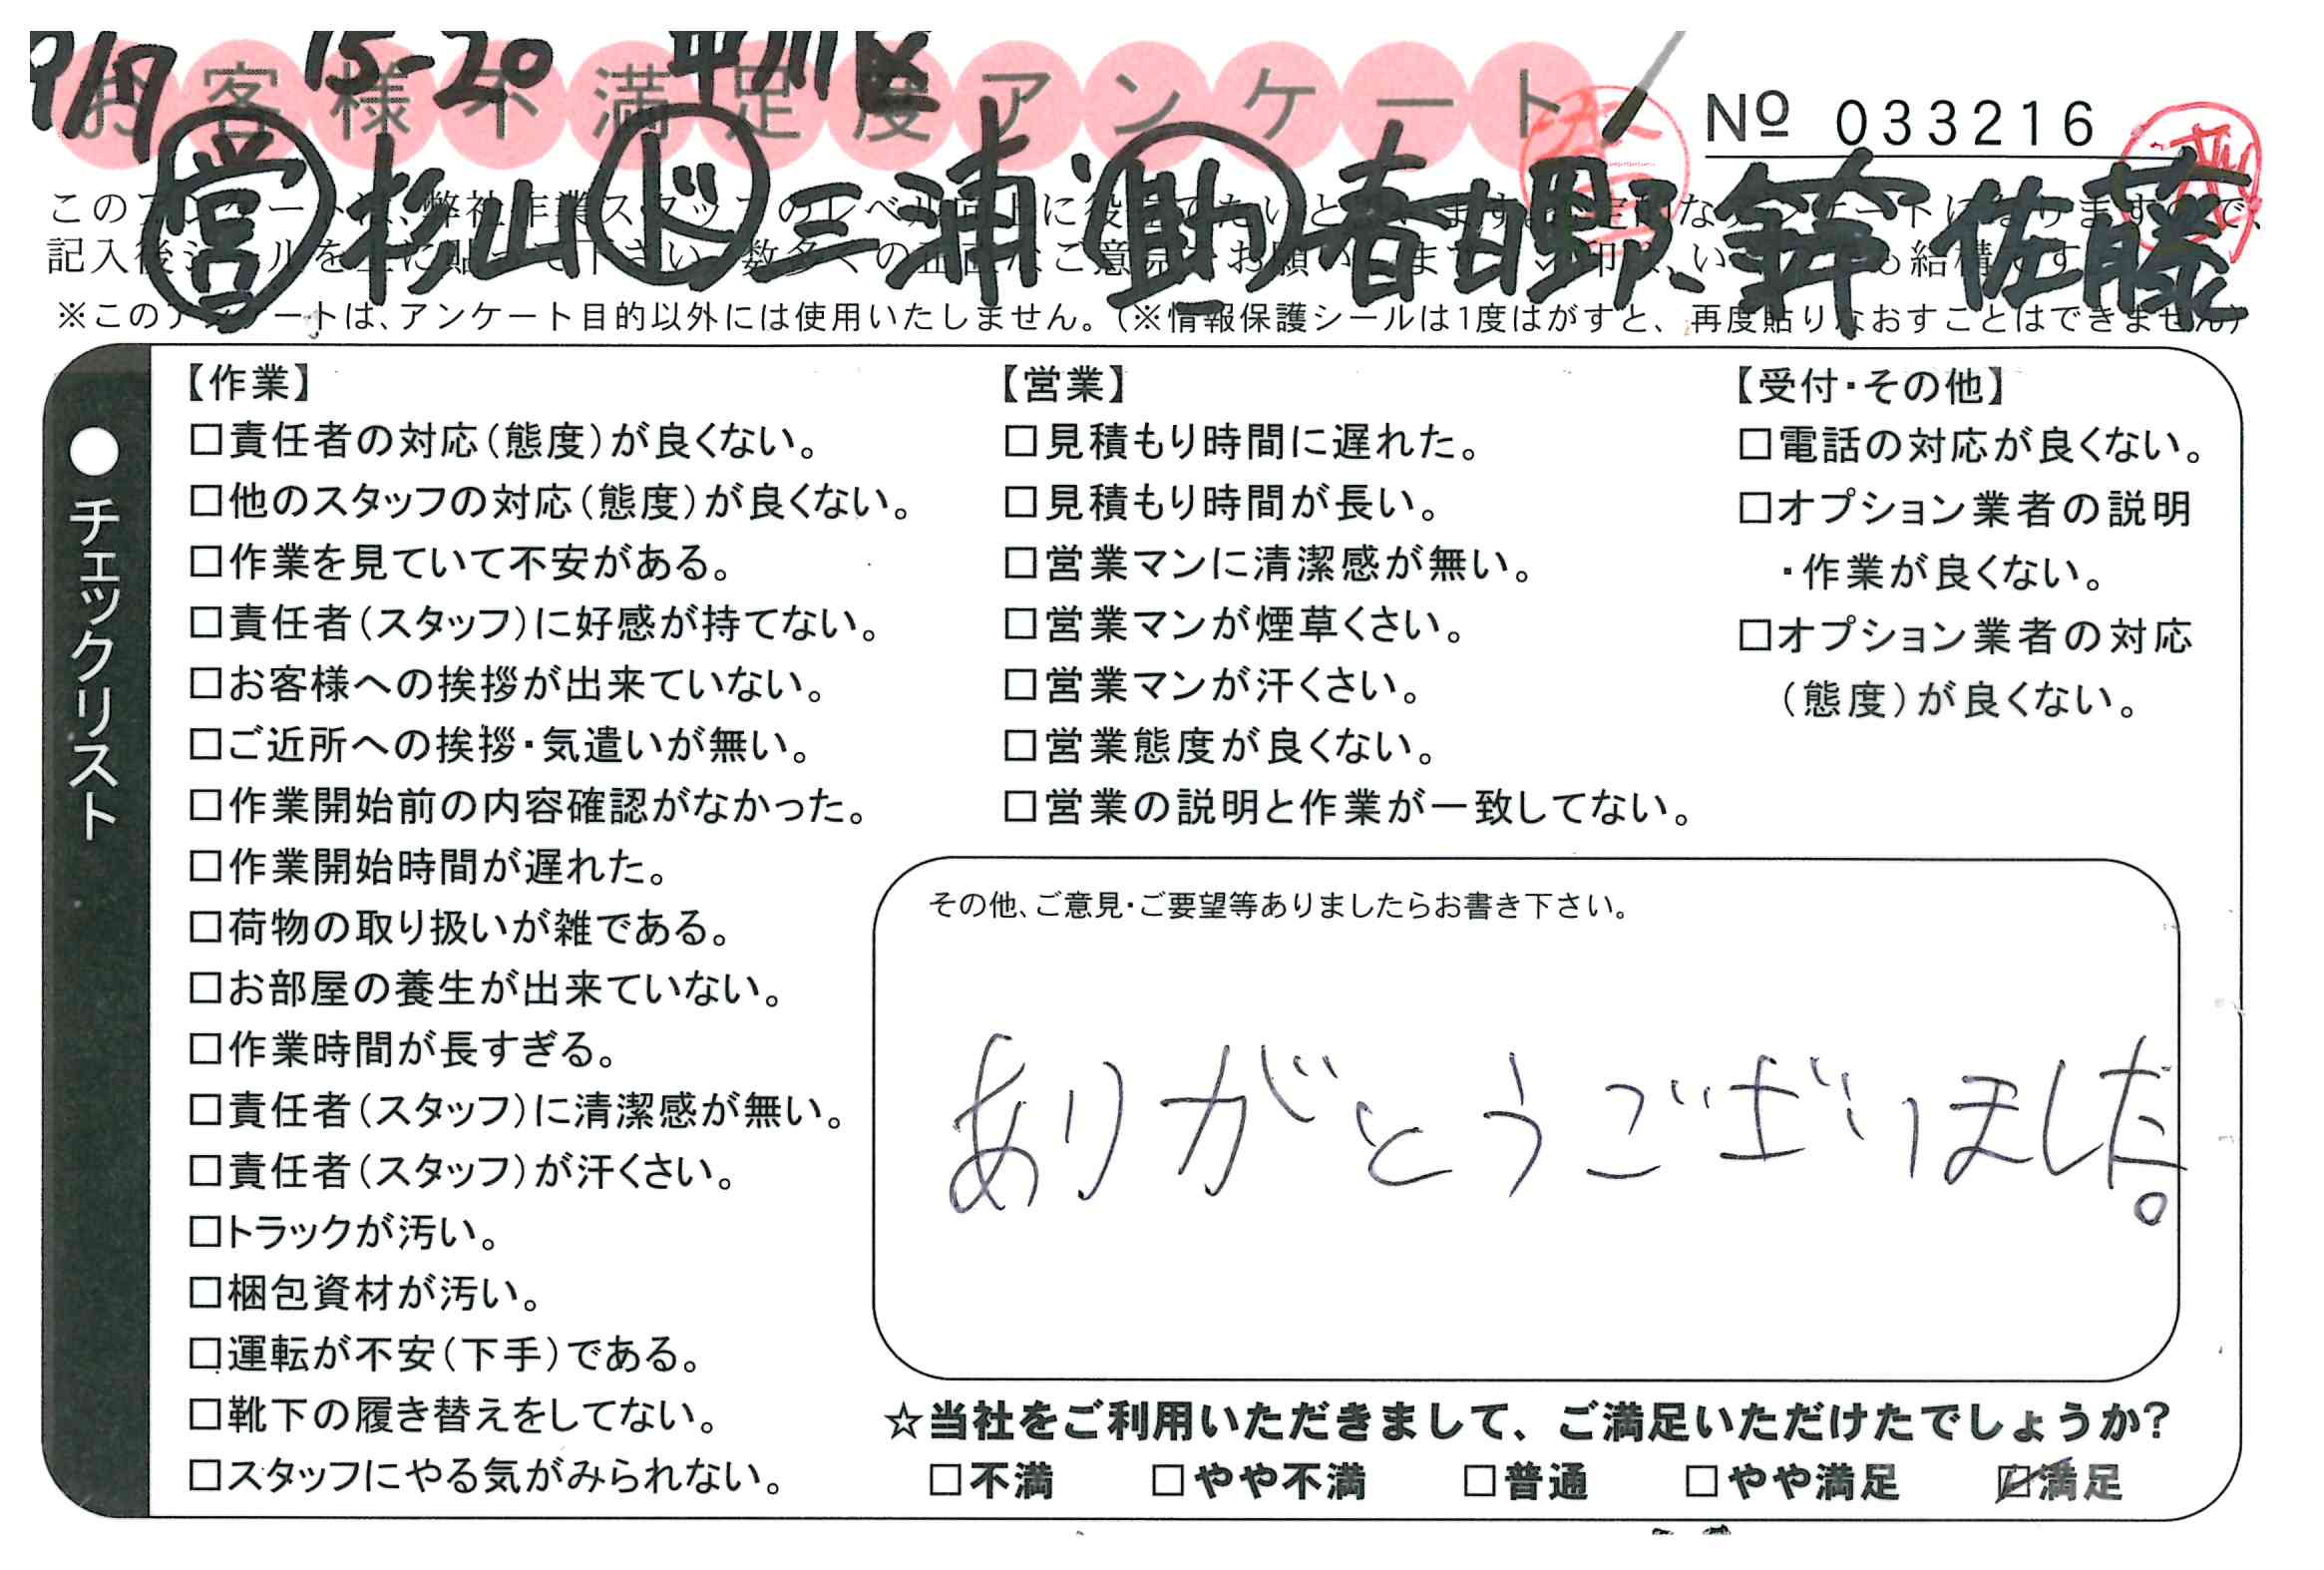 9/17 15-20 中川区
お客様不満足度アンケート
No 033216
営 杉山 ド 三浦、助 春日野、鈴 佐藤
※このアンケートは、アンケート目的以外には使用いたしません。(※情報保護シールは1度はがすと、再度貼りなおすことはできません)
●チェックリスト
【作業】
□責任者の対応(態度)が良くない。
□他のスタッフの対応(態度)が良くない。
□作業を見ていて不安がある。
□責任者(スタッフ)に好感が持てない。
□お客様への挨拶が出来ていない。
□ご近所への挨拶・気遣いが無い。
□作業開始前の内容確認がなかった。
□作業開始時間が遅れた。
□荷物の取り扱いが雑である。
□お部屋の養生が出来ていない。
□作業時間が長すぎる。
□責任者(スタッフ)に清潔感が無い。
□責任者(スタッフ)が汗くさい。
□トラックが汚い。
□梱包資材が汚い。
□運転が不安(下手)である。
□靴下の履き替えをしてない。
□スタッフにやる気がみられない。
【営業】
□見積もり時間に遅れた。
□見積もり時間が長い。
□営業マンに清潔感が無い。
□営業マンが煙草くさい。
□営業マンが汗くさい。
□営業態度が良くない。
□営業の説明と作業が一致してない。
【受付・その他】
□電話の対応が良くない。
□オプション業者の説明
・作業が良くない。
□オプション業者の対応
(態度)が良くない。
その他、ご意見・ご要望等ありましたらお書き下さい。
ありがとうございました。
☆当社をご利用いただきまして、ご満足いただけたでしょうか?
□不満 □やや不満 □普通 □やや満足 ☑満足